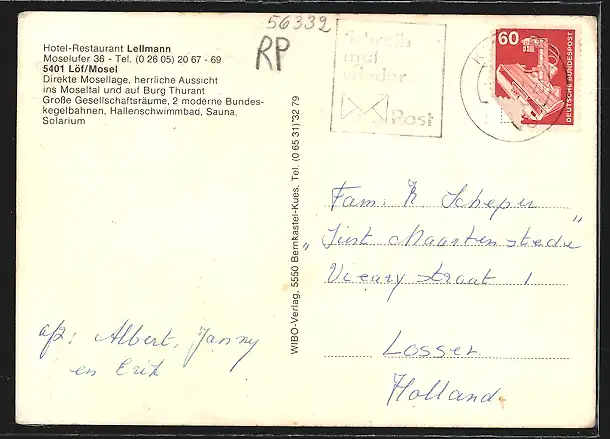 56332
RP
Hotel-Restaurant Lellmann
Moselufer 36 - Tel. (0 26 05) 20 67 - 69
5401 Löf/Mosel
Direkte Mosellage, herrliche Aussicht
ins Moseltal und auf Burg Thurant
Große Gesellschaftsräume, 2 moderne Bundes-
kegelbahnen, Hallenschwimmbad, Sauna,
Solarium
Schreib
mal
wieder
Post
60
DEUTSCHE BUNDESPOST
WIBO-Verlag, 5550 Bernkastel-Kues, Tel. (0 65 31) *32 79
Fam: K. Scheper
"Sint Maartensstede"
Vicary straat 1
Losser
Holland
afz: Albert, Janny
en Erik